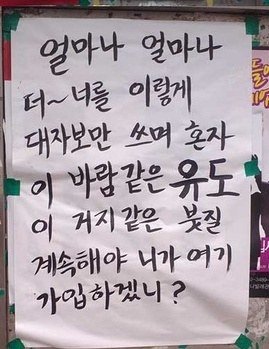 얼마나 얼마나
더~ 너를 이렇게
대자보만 쓰며 혼자
이 바람같은 유도
이 거지같은 붓질
계속해야 니가 여기
가입하겠니?